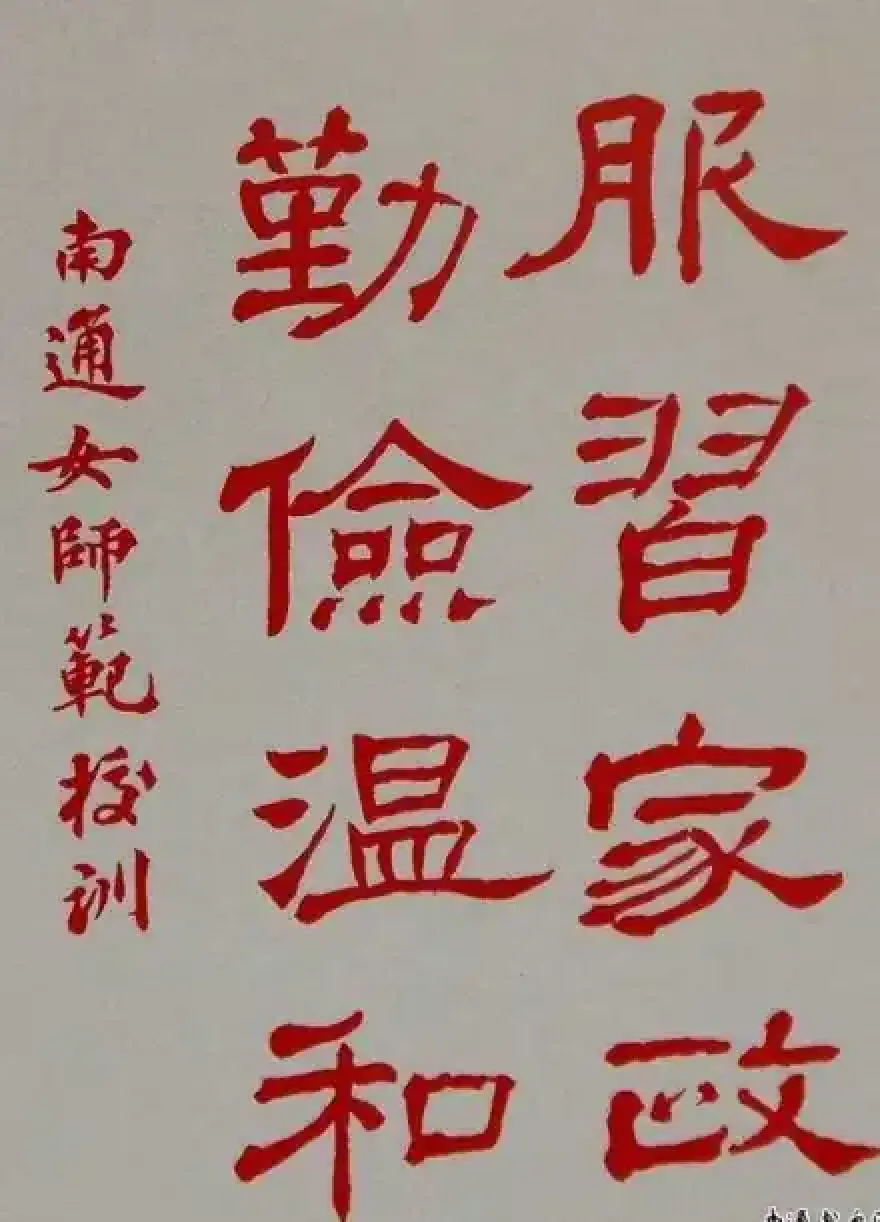 服習家政
勤儉温和
南通女師範校训